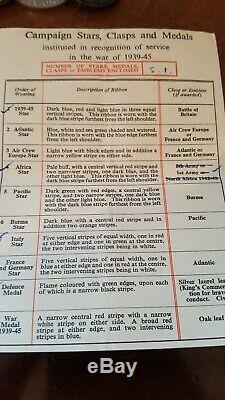 Campaign Stars, Clasps and Medals
instituted in recognition of service
in the war of 1939-45
NUMBER OF STARS, MEDALS,
CLASPS or EMBLEMS ENCLOSED
Order of Wearing
Description of Ribbon
Clasp or Emblem (if awarded)
1939-45 Star
Dark blue, red and light blue in three equal
vertical stripes. This ribbon is worn with the
dark blue stripe furthest from the left
shoulder.
Battle of Britain
2 Atlantic Star
Blue, white and sea green shaded and watered.
This ribbon is worn with the blue edge furthest
from the left shoulder.
Air Crew Europe
or
France and Germany
3 Air Crew Europe Star
Light blue with black edges and in addition a
narrow yellow stripe on either side.
Atlantic or
France and Germany
Star
Pale buff, with a central vertical red stripe and
two narrower stripes, one dark blue, and the
other light blue. This ribbon is worn with the
dark blue stripe furthest from the left shoulder.
8th Army or
1st Army
North Africa 1942-43
5 Pacific Star
Dark green with red edges, a central yellow
stripe, and two narrow stripes, one dark blue
and the other light blue. This ribbon is worn
with the dark blue stripe furthest from the left
shoulder.
Burma
6 Burma Star
Dark blue with a central red stripe and in
addition two orange stripes.
Pacific
7 Italy Star
Five vertical stripes of equal width, one in red
at either edge and one in green at the centre,
the two intervening stripes being in white.
France and Germany Star
Five vertical stripes of equal width, one in
blue at either edge and one in red at the centre,
the two intervening stripes being in white.
Atlantic
Defence Medal
Flame coloured with green edges, upon each
of which is a narrow black stripe.
Silver laurel
(King's
War Medal 1939-45
A narrow central red stripe with a narrow
white stripe on either side. A broad red
stripe at either edge, and two intervening
stripes in blue.
Oak leaf